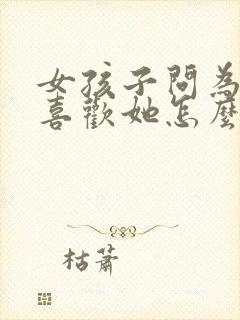 女孩子問為
喜歡她怎麼
枯蕭